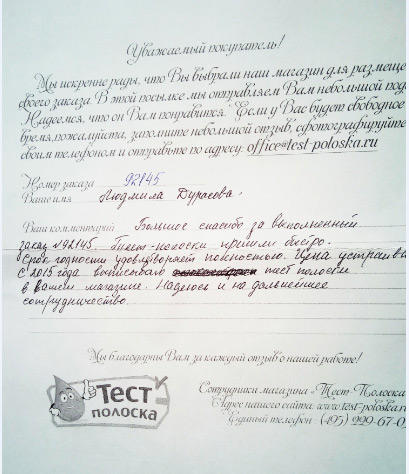 Уважаемый покупатель!
Мы искренне рады, что Вы выбрали наш магазин для размеще
своего заказа. В этой посылке мы отправляем Вам небольшой под
Надеемся, что он Вам понравится. Если у Вас будет свободное
время, пожалуйста, заполните небольшой отзыв, сфотографируйте
своим телефоном и отправьте по адресу: office@test-poloska.ru
Номер заказа 92145
Ваше имя Людмила Дурасова.
Ваш комментарий Большое спасибо за выполненный
заказ №92145. Тест-полоски пришли быстро.
Срок годности удовлетворяет полностью. Цена устраива
С 2015 года выписываю тест полоски
в вашем магазине. Надеюсь и на дальнейшее
сотрудничество.
Мы благодарны Вам за каждый отзыв о нашей работе!
Тест
полоска
Сотрудники магазина «Тест-Полоска
Адрес нашего сайта: www.test-poloska.
Единый телефон (495) 229-67-0